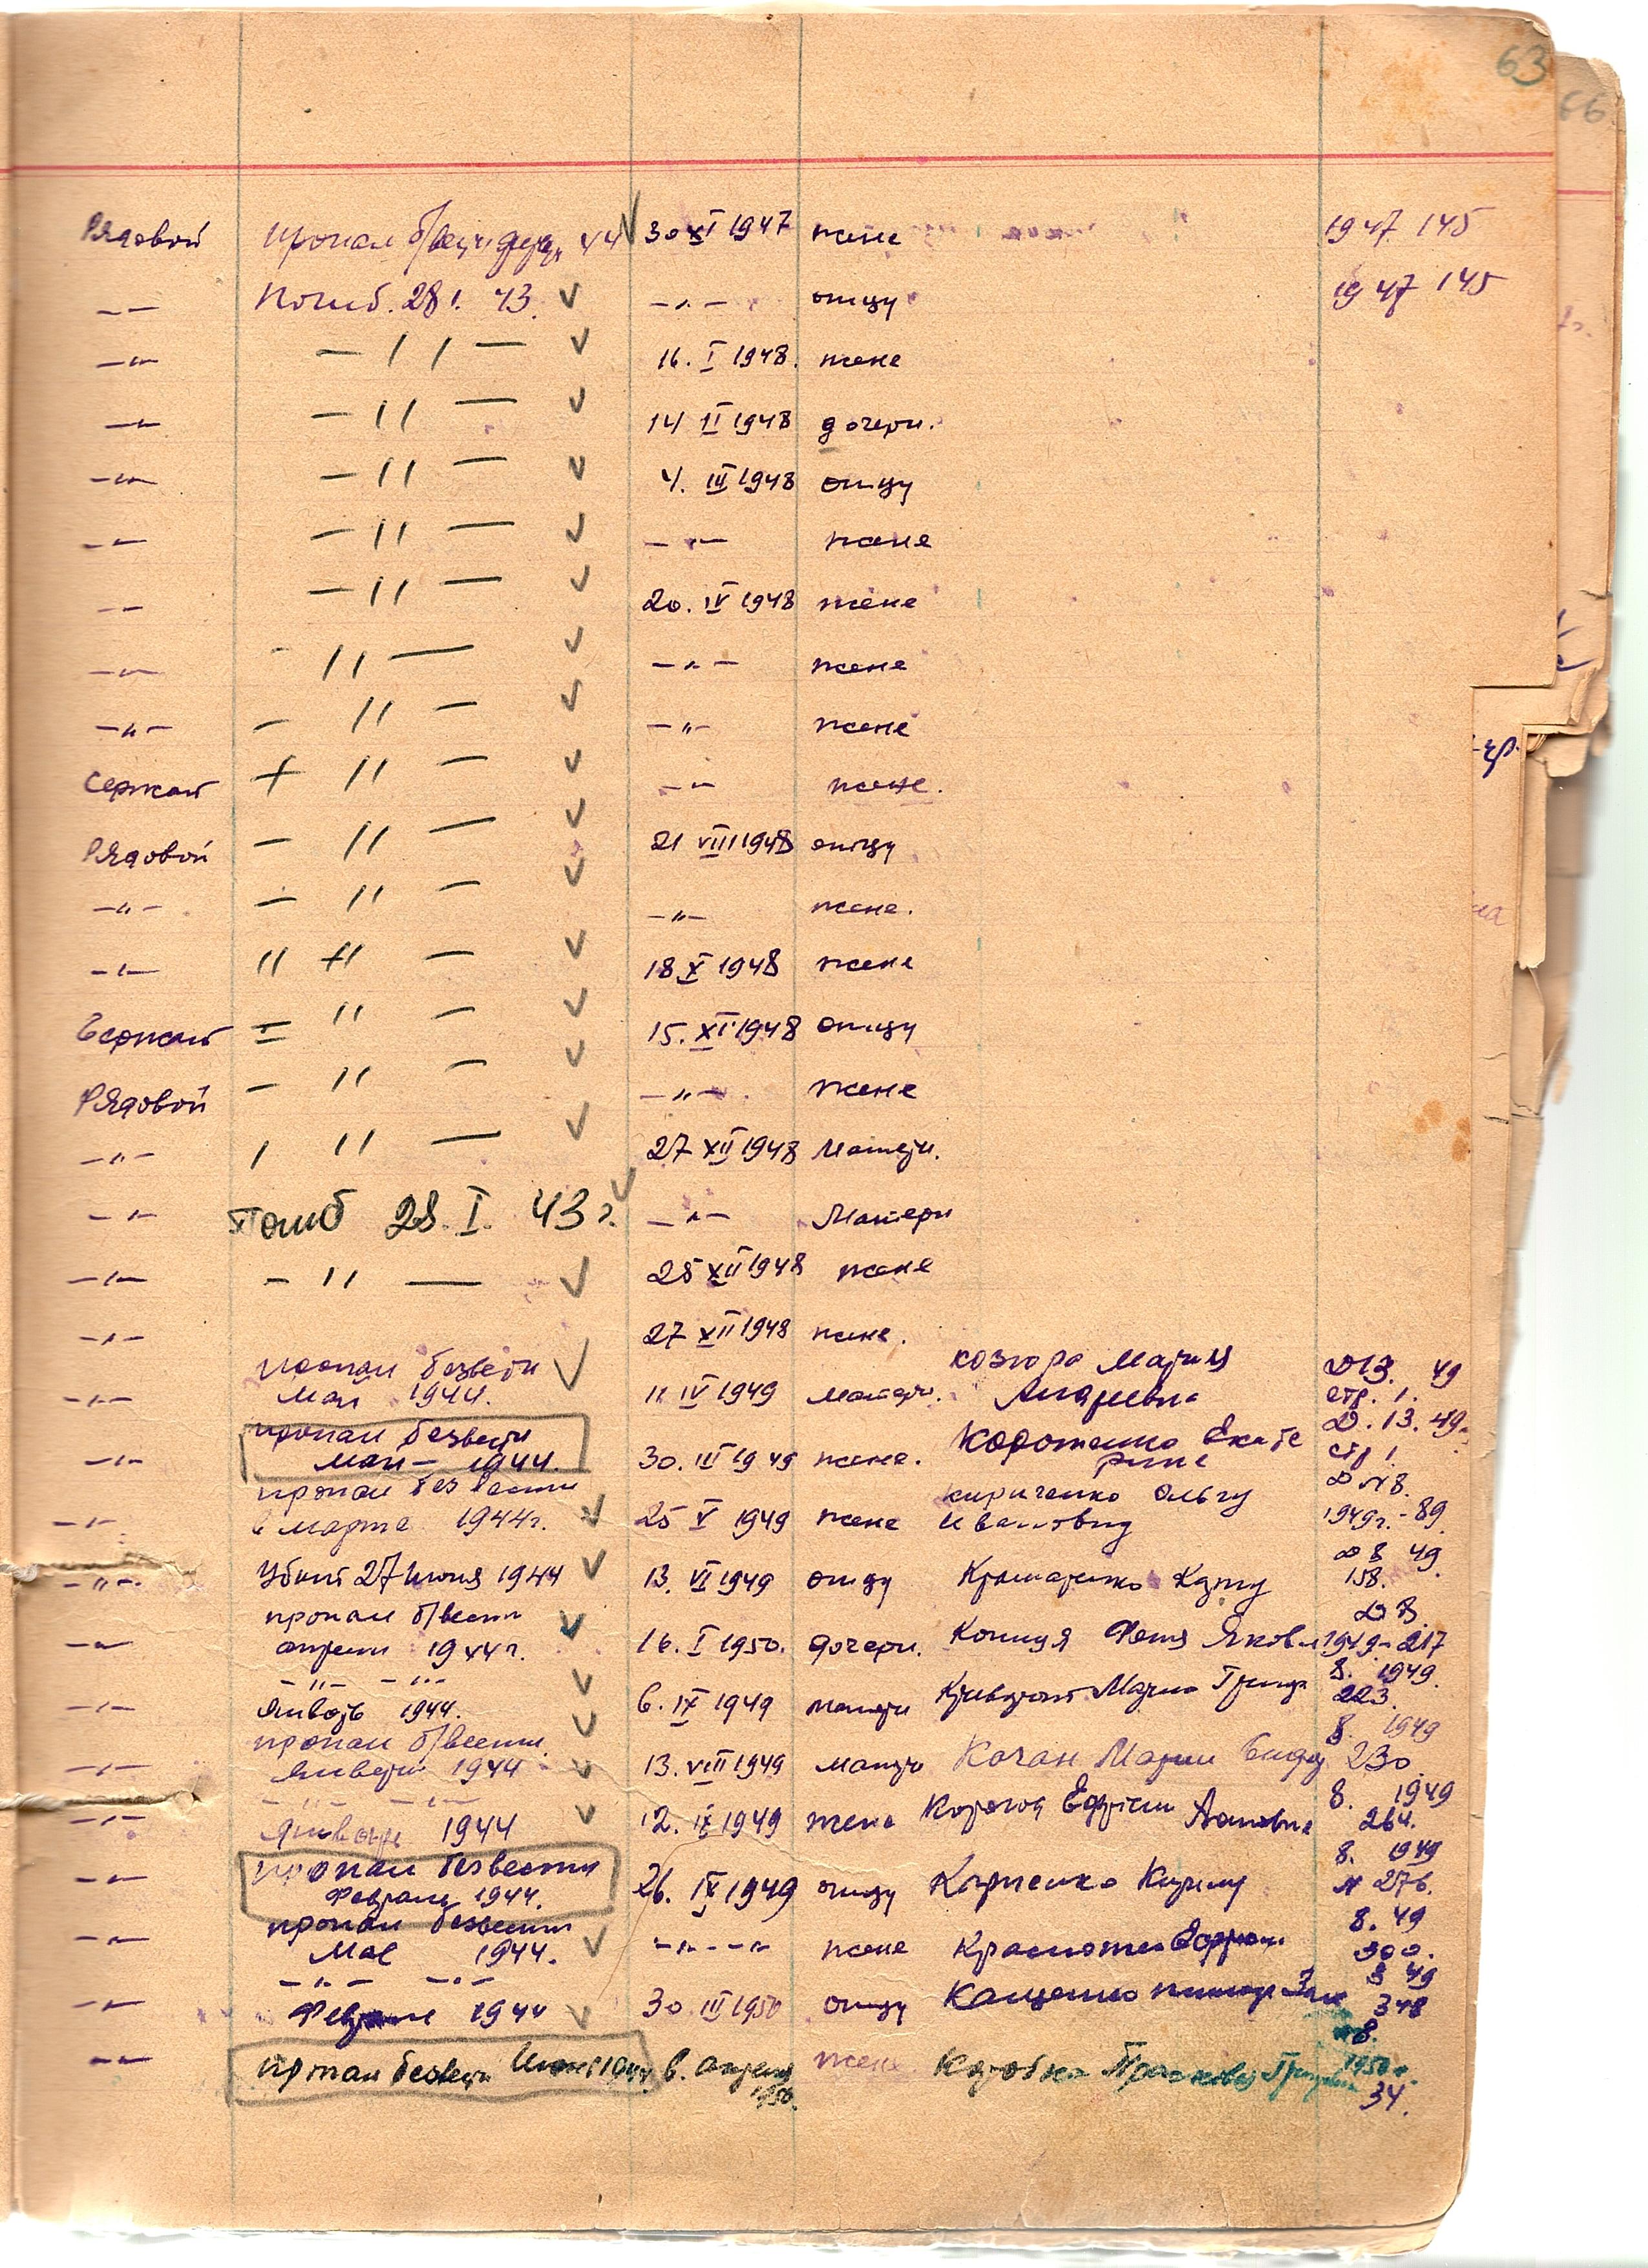 63
66
Рядовой пропал б/вести 44 30 XI 1947 жене 1947 145
-"- Погиб. 28 I. 43. -"- отцу 1947 145
-"- - " - 16. I 1948. жене
-"- - " - 14 II 1948 дочери.
-"- - " - 4. III 1948 отцу
-"- - " - -"- жене
-"- - " - 20. IV 1948 жене
-"- - " - -"- жене
-"- - " - -"- жене
Сержант - " - -"- жене.
Рядовой - " - 21 VIII 1948 отцу
-"- - " - -"- жене.
-"- " - 18 X 1948 жене
Сержант - " - 15. XI 1948 отцу
Рядовой - " - -"- жене
-"- " - 27 XII 1948 Матери.
-"- Погиб 28. I. 43 г. -"- Матери
-"- - " - 25 XII 1948 жене
-"- 27 XII 1948 жене.
пропал безвести Мария Д 13. 49
-"- май 1944. 11 IV 1949 матери. Андреевна стр. 1.
пропал безвести Коротенко Екате Д. 13. 49
-"- май - 1944. 30. III 1949 жене. рине стр 1.
пропал без вести Кириченко Ольгу Д N 8.
-"- в марте 1944г. 25 V 1949 жене Ивановну 1949г. - 89.
Д 8 49.
-"- Убит 27 июня 1944 13. VI 1949 отцу Крамаренко 158.
пропал б/вести Д 8.
-"- апреле 1944г. 16. I 1950. дочери. 1949 - 217
-"- -"- 8. 1949.
-"- Январь 1944. 6. IX 1949 матери Мария 223.
пропал б/вести 8. 1949
-"- Январе 1944 13. VIII 1949 матери Кочан Марии 230.
-"- -"- 8. 1949
-"- Январе 1944 12. IX 1949 жене 264.
пропал безвести 8. 1949
-"- Феврале 1944. 26. IX 1949 отцу Корниенко Кирилу N 276.
пропал безвести 8. 49
-"- Мае 1944. -"- -"- жене 300.
-"- -"- 8 49
-"- Феврале 1944 30 III 1950 отцу Кащенко 348
8.
-"- пропал безвести Июнь 1944 в. апреле жене Коробка Прасковья 1950г.
1950. 34.